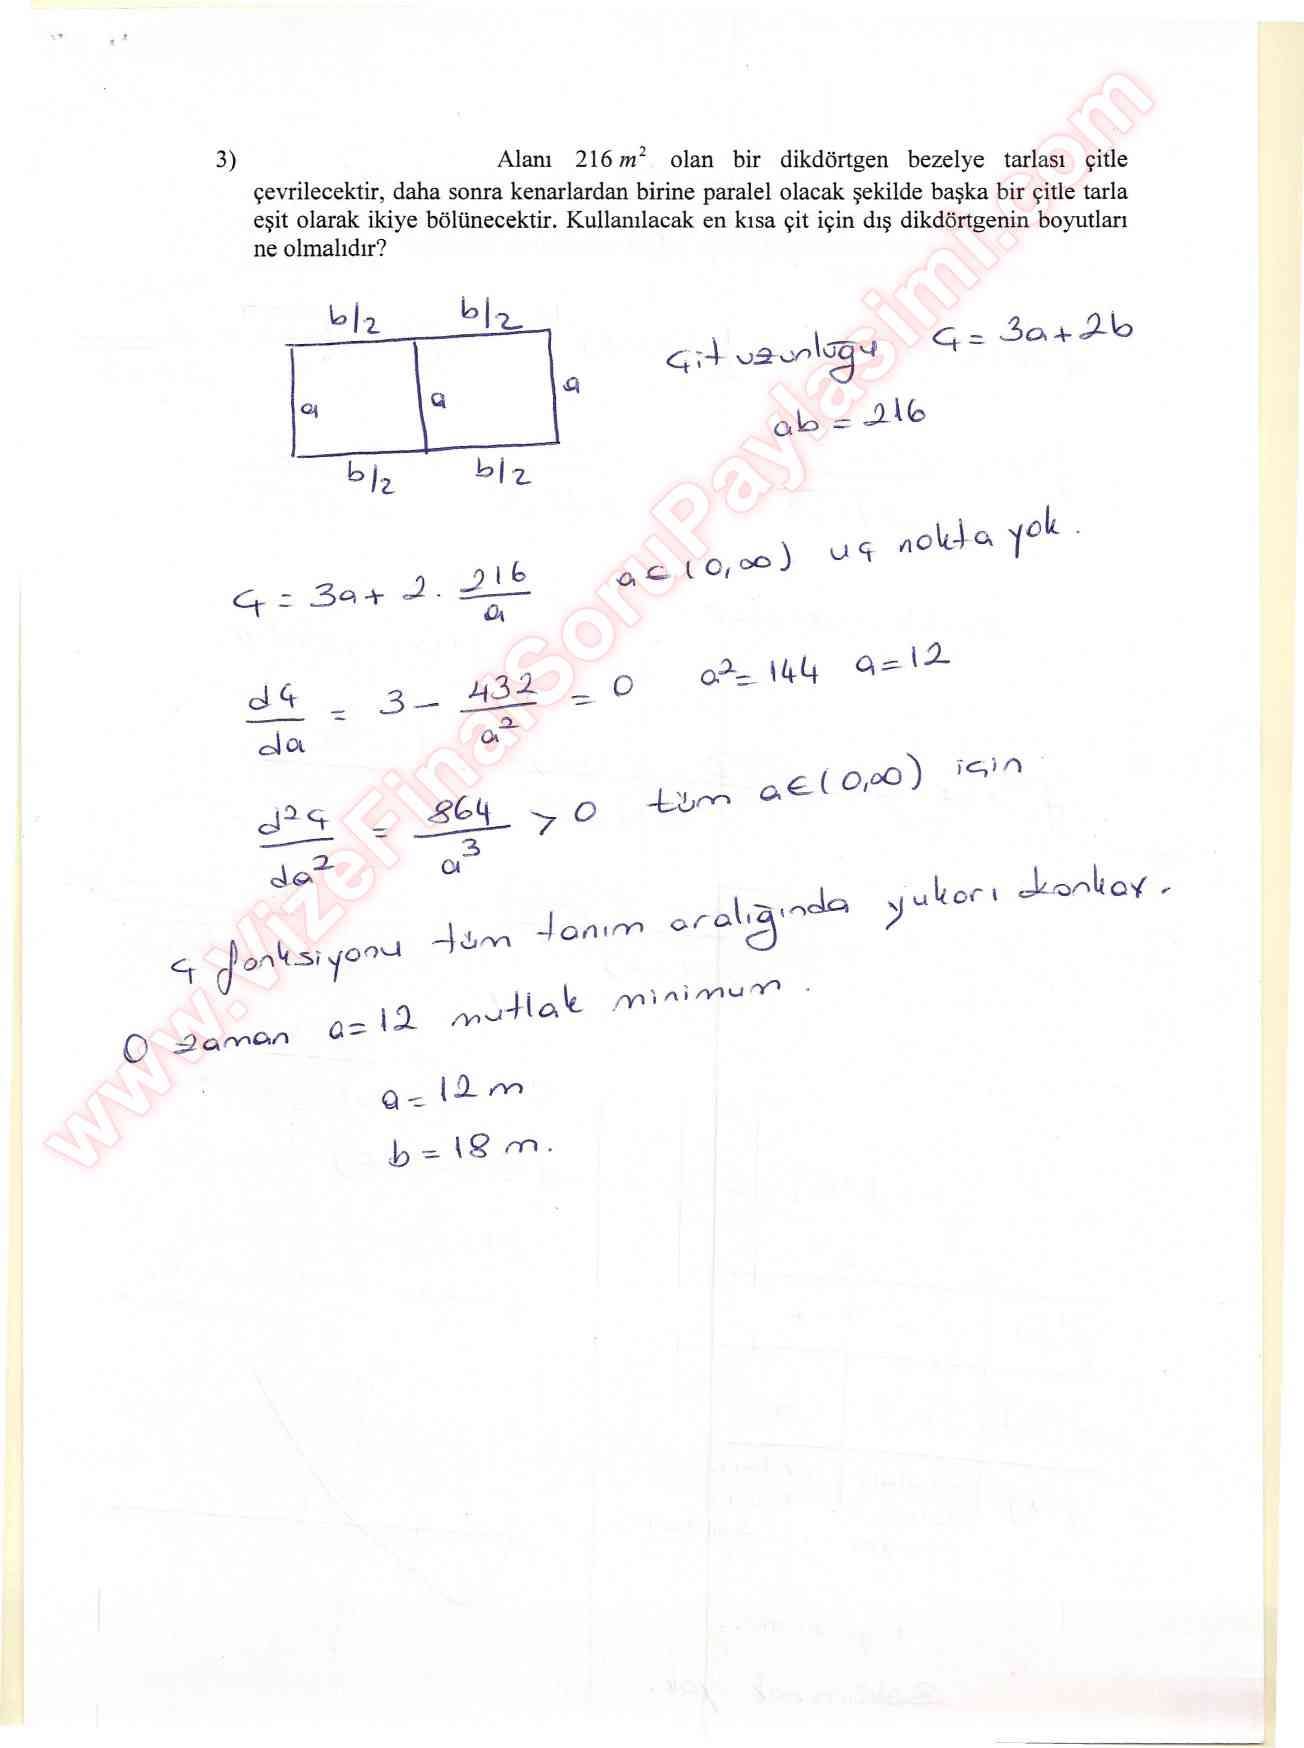 3) Alanı 216 m² olan bir dikdörtgen bezelye tarlası çitle
çevrilecektir, daha sonra kenarlardan birine paralel olacak şekilde başka bir çitle tarla
eşit olarak ikiye bölünecektir. Kullanılacak en kısa çit için dış dikdörtgenin boyutları
ne olmalıdır?
b/2 b/2
a a a
b/2 b/2
Çit uzunluğu Ç = 3a + 2b
ab = 216
Ç = 3a + 2 . 216/a a ∈ (0,∞) uç nokta yok .
dÇ/da = 3 - 432/a² = 0 a² = 144 a = 12
d²Ç/da² = 864/a³ > 0 tüm a ∈ (0,∞) için
Ç fonksiyonu tüm tanım aralığında yukarı konkav .
O zaman a = 12 mutlak minimum .
a = 12 m
b = 18 m .
www.VizeFinalSoruPaylasimi.com